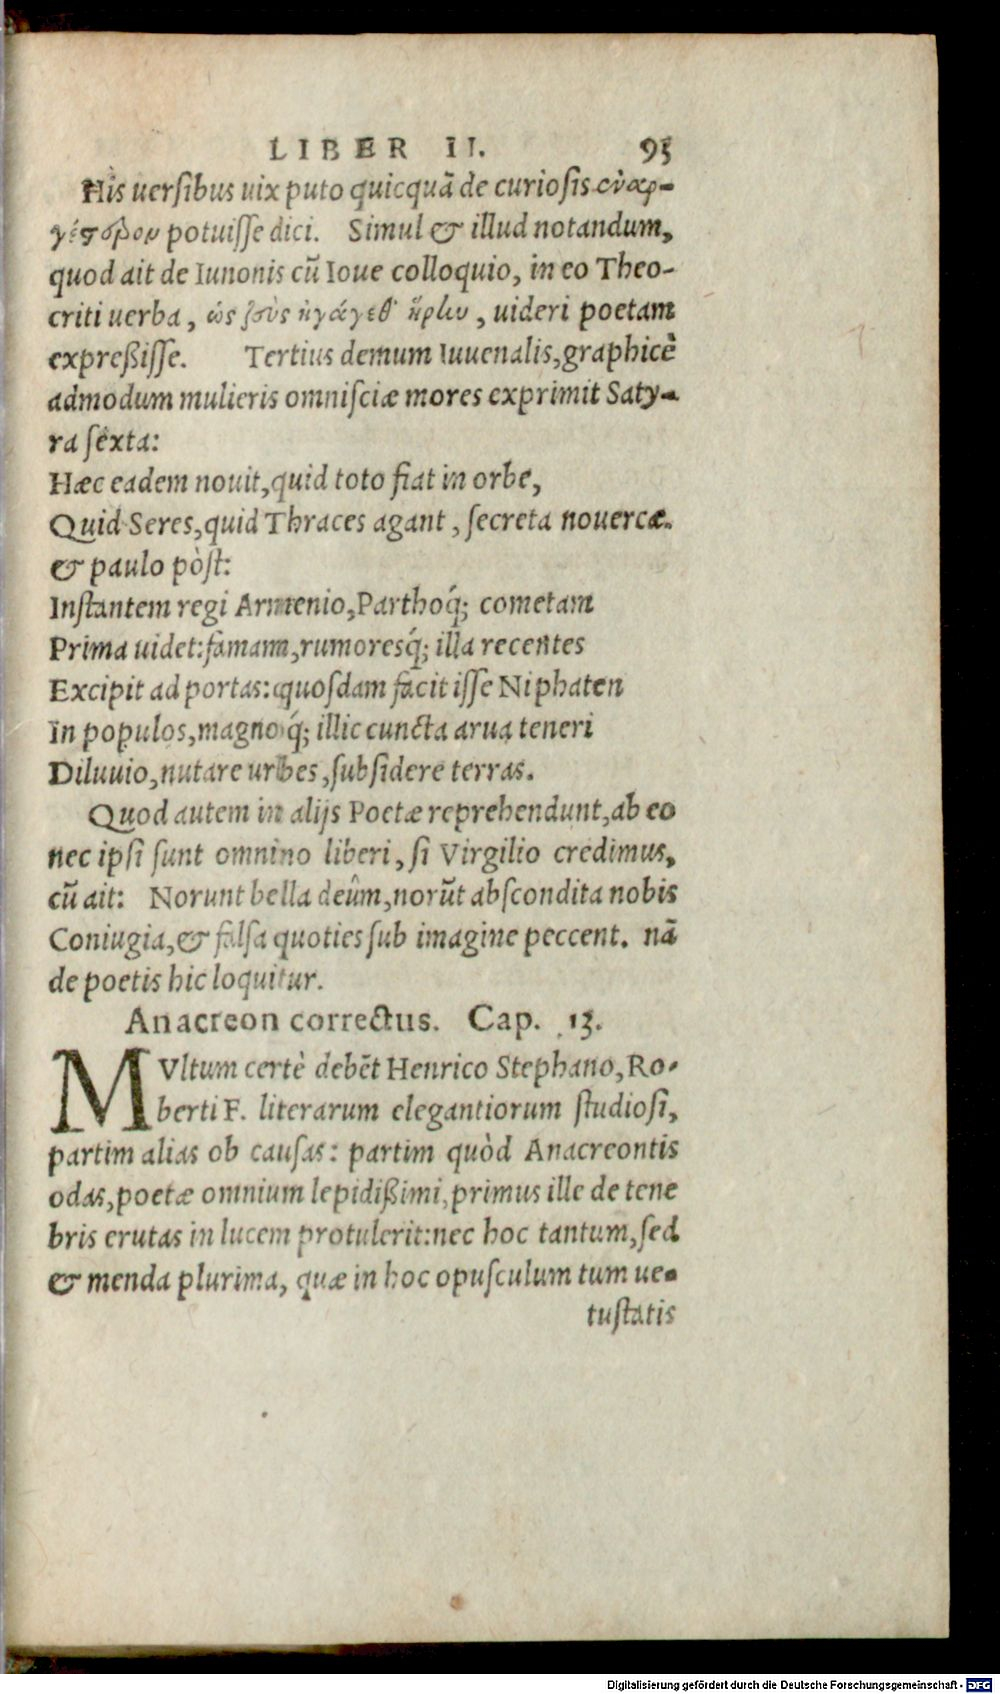 LIBER II. 95
His uersibus uix puto quicquã de curiosis ἐναρ-
γέστερον potuisse dici. Simul & illud notandum,
quod ait de Iunonis cũ Ioue colloquio, in eo Theo-
criti uerba, ὡς ζεὺς ἠγάγεθ' ἥρlω, uideri poetam
expreßisse. Tertius demum Iuuenalis, graphicè
admodum mulieris omnisciæ mores exprimit Saty-
ra sexta:
Hæc eadem nouit, quid toto fiat in orbe,
Quid Seres, quid Thraces agant, secreta nouercæ.
& paulo pòst:
Instantem regi Armenio, Parthoq́; cometam
Prima uidet: famam, rumoresq́; illa recentes
Excipit ad portas: quosdam facit isse Niphaten
In populos, magnoq́; illic cuncta arua teneri
Diluuio, nutare urbes, subsidere terras.
Quod autem in alijs Poetæ reprehendunt, ab eo
nec ipsi sunt omnino liberi, si Virgilio credimus,
cũ ait: Norunt bella deûm, norũt abscondita nobis
Coniugia, & falsa quoties sub imagine peccent. nã
de poetis hic loquitur.
Anacreon correctus. Cap. 13.
MVltum certè debẽt Henrico Stephano, Ro-
berti F. literarum elegantiorum studiosi,
partim alias ob causas: partim quòd Anacreontis
odas, poetæ omnium lepidißimi, primus ille de tene
bris erutas in lucem protulerit: nec hoc tantum, sed
& menda plurima, quæ in hoc opusculum tum ue-
tustatis
Digitalisierung gefördert durch die Deutsche Forschungsgemeinschaft - DFG